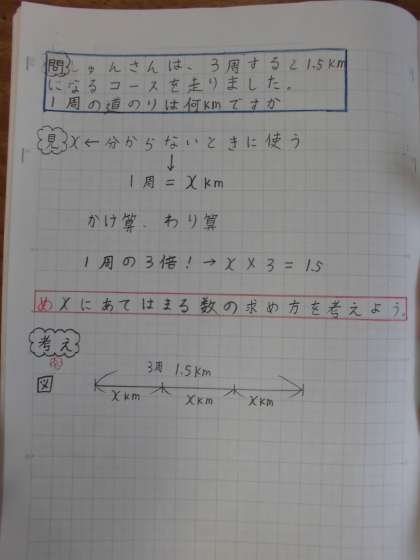 問 しゅんさんは、3周すると1.5km
になるコースを走りました。
1周の道のりは何kmですか
見 x←分からないときに使う
↓
1周＝xkm
かけ算、わり算
1周の3倍！→x×3＝1.5
めxにあてはまる数の求め方を考えよう。
考え
図
3周 1.5km
xkm xkm xkm